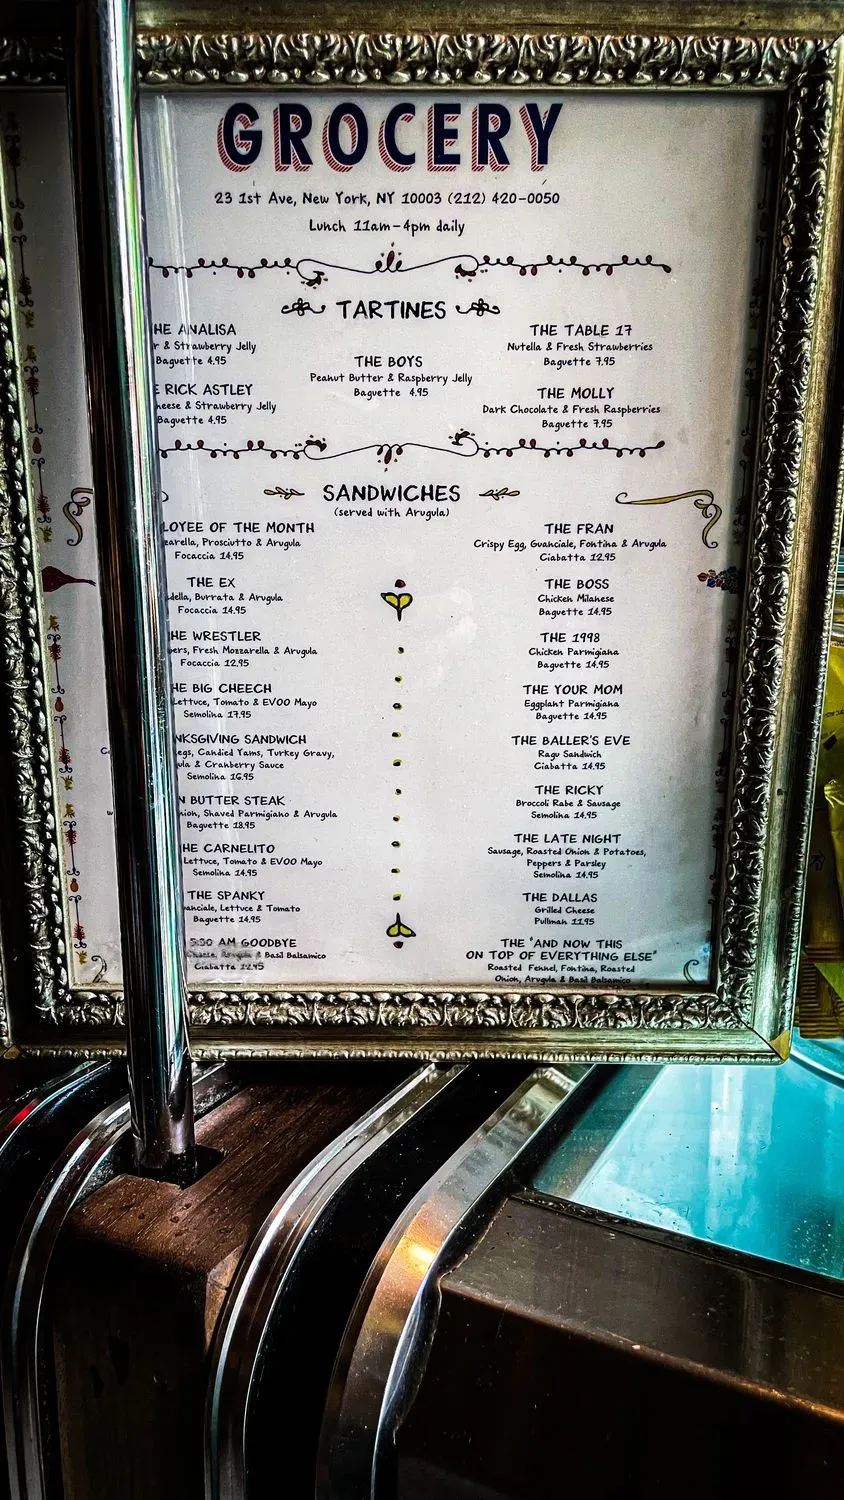 GROCERY
23 1st Ave, New York, NY 10003 (212) 420-0050
Lunch 11am-4pm daily
TARTINES
ANALISA
& Strawberry Jelly
Baguette 4.95
RICK ASTLEY
& Strawberry Jelly
Baguette 4.95
THE BOYS
Peanut Butter & Raspberry Jelly
Baguette 4.95
THE TABLE 17
Nutella & Fresh Strawberries
Baguette 7.95
THE MOLLY
Dark Chocolate & Fresh Raspberries
Baguette 7.95
SANDWICHES
(served with Arugula)
OF THE MONTH
Prosciutto & Arugula
Focaccia 14.95
THE EX
Burrata & Arugula
Focaccia 14.95
WRESTLER
Fresh Mozzarella & Arugula
Focaccia 12.95
BIG CHEECH
Lettuce, Tomato & EVOO Mayo
Semolina 17.95
SANDWICH
Candied Yams, Turkey Gravy,
& Cranberry Sauce
Semolina 16.95
BUTTER STEAK
Shaved Parmigiano & Arugula
Baguette 18.95
CARNELITO
Lettuce, Tomato & EVOO Mayo
Semolina 14.95
THE SPANKY
Lettuce & Tomato
Baguette 14.95
5:30 AM GOODBYE
Arugula & Basil Balsamico
Ciabatta 12.95
THE FRAN
Crispy Egg, Guanciale, Fontina & Arugula
Ciabatta 12.95
THE BOSS
Chicken Milanese
Baguette 14.95
THE 1998
Chicken Parmigiana
Baguette 14.95
THE YOUR MOM
Eggplant Parmigiana
Baguette 14.95
THE BALLER'S EVE
Ragu Sandwich
Ciabatta 14.95
THE RICKY
Broccoli Rabe & Sausage
Semolina 14.95
THE LATE NIGHT
Sausage, Roasted Onion & Potatoes,
Peppers & Parsley
Semolina 14.95
THE DALLAS
Grilled Cheese
Pullman 11.95
THE "AND NOW THIS
ON TOP OF EVERYTHING ELSE"
Roasted Fennel, Fontina, Roasted
Onion, Arugula & Basil Balsamico